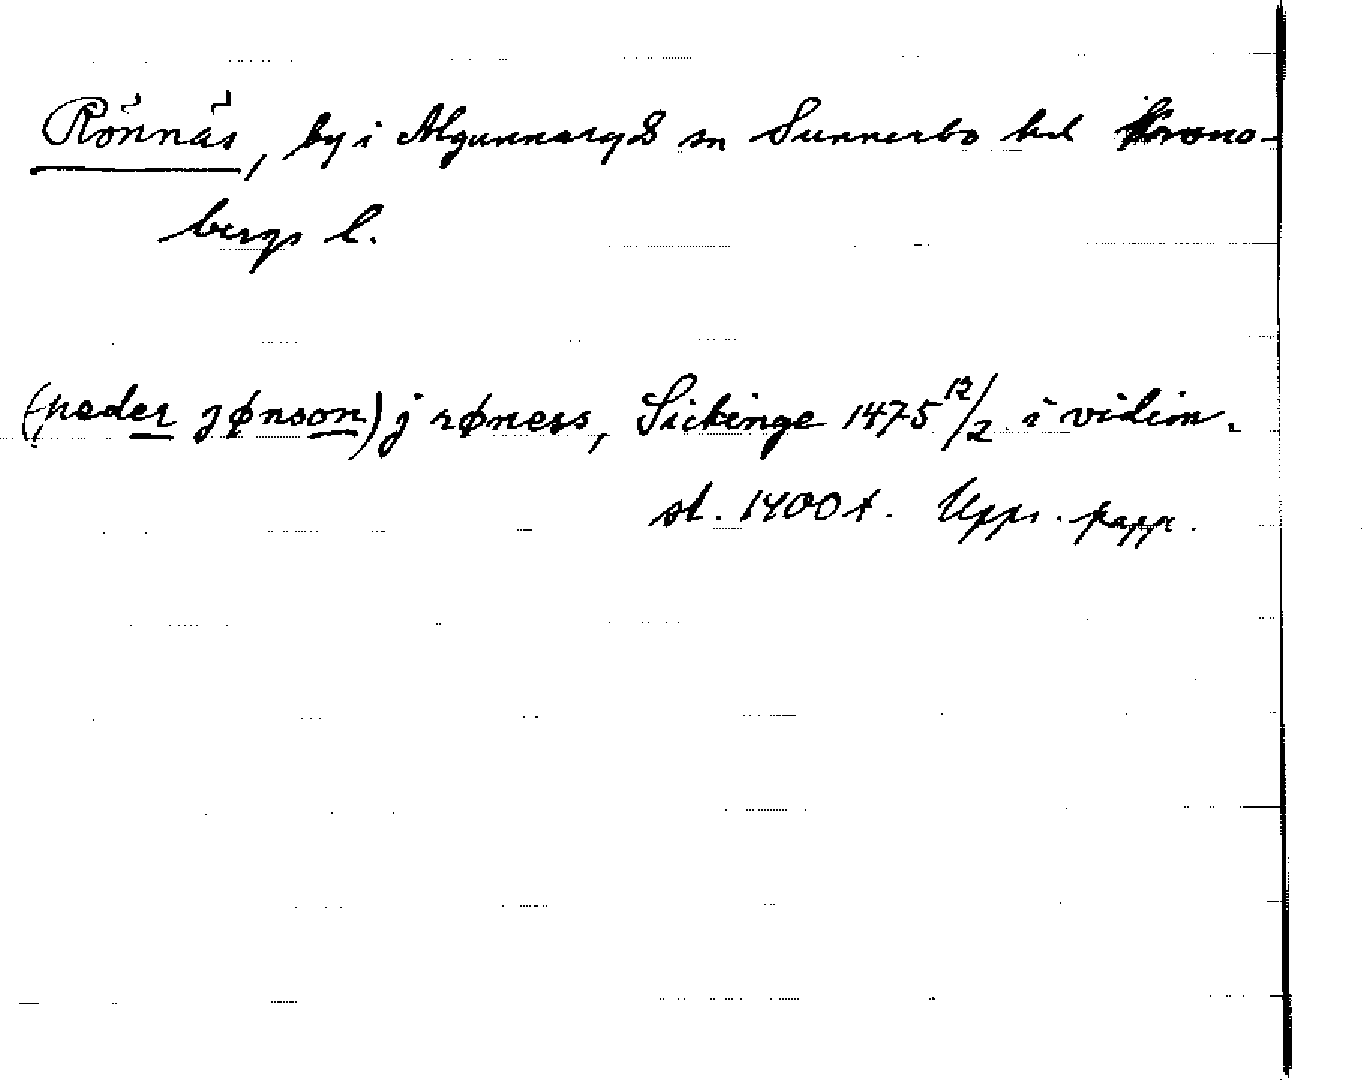 Rönnäs, by i Algunnaryds sn Sunnerbo hd Krono-
bergs l.
(peder jønson) j røness, Sickinge 1475 12/2 i vidim.
st. 1400 t. Upps. papp.